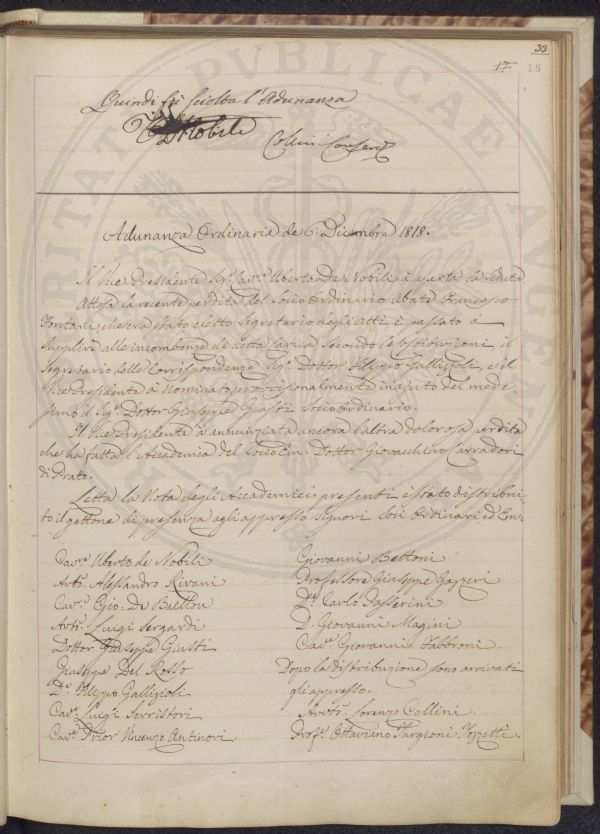 33
17 18
Quindi fù sciolta l'Adunanza
De Nobili
Collini
Adunanza Ordinaria de 6. Dicembre 1818.
Il Vice Presidente Sig.r Cav.re Uberto de Nobili à aperta la seduta
Attesa la recente perdita del Socio Ordinario Abate Francesco
Fontani, che era stato eletto Segretario degli Atti, è passato a
supplire alle incombenze di detta Carica secondo le Costituzioni, il
Segretario delle Corrispondenze Sig.r Dottor Filippo Gallizioli, e il
Vice Presidente à nominato provvisionalmente in ajuto del mede
simo il Sig.r Dottor Giuseppe Giusti Socio Ordinario.
Il Vice Presidente à annunziata ancora l'altra dolorosa perdita
che ha fatta l'Accademia del Socio Em. Dottor Giovacchino Carradori
di Prato.
Letta la Nota degli Accademici presenti è stato distribui
to il gettone di presenza agli appresso Signori Soci Ordinari ed Em.
Cav.re Uberto de Nobili
Avv.to Alessandro Rivani
Cav.re Gio: De
Avv.to Luigi Sergardi
Dottor Giuseppe Giusti
Giuseppe Del Rosso
D.r Filippo Gallizioli
Cav.re Luigi Serristori
Cav.re Prior Vincenzo Antinori.
Giovanni Bettoni
Professore Giuseppe Gazzeri
D.r Carlo Passerini
D. Giovanni Magini
Cav.re Giovanni Fabbroni.
Dopo la distribuzione sono arrivati
gli appresso.
Avv.to Lorenzo Collini
Prof.re Ottaviano Targioni Tozzetti.